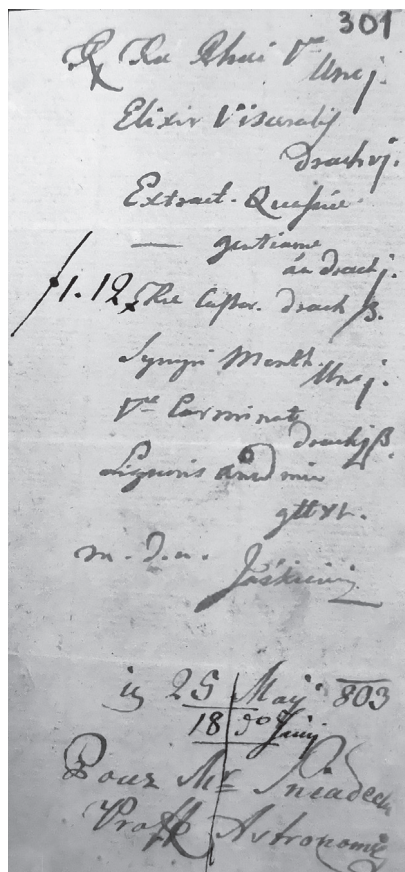 301
Rx Rae Rhei Vae
Unc j.
Elixir Visceralis
Drach vj.
Extract. Quassiae
— gentianae
áà drach j.
f 1. 12 Rae Castor. drach ß.
Syrupi Menth.
Unc j.
Vae Carminat
drach jß.
Liquoris anod min
gtt XL.
m. D. u. Jáśkiewi
is 25 Maji 803
18 30 Junij
Pour Mr Sniadecki
Profr Astronomie